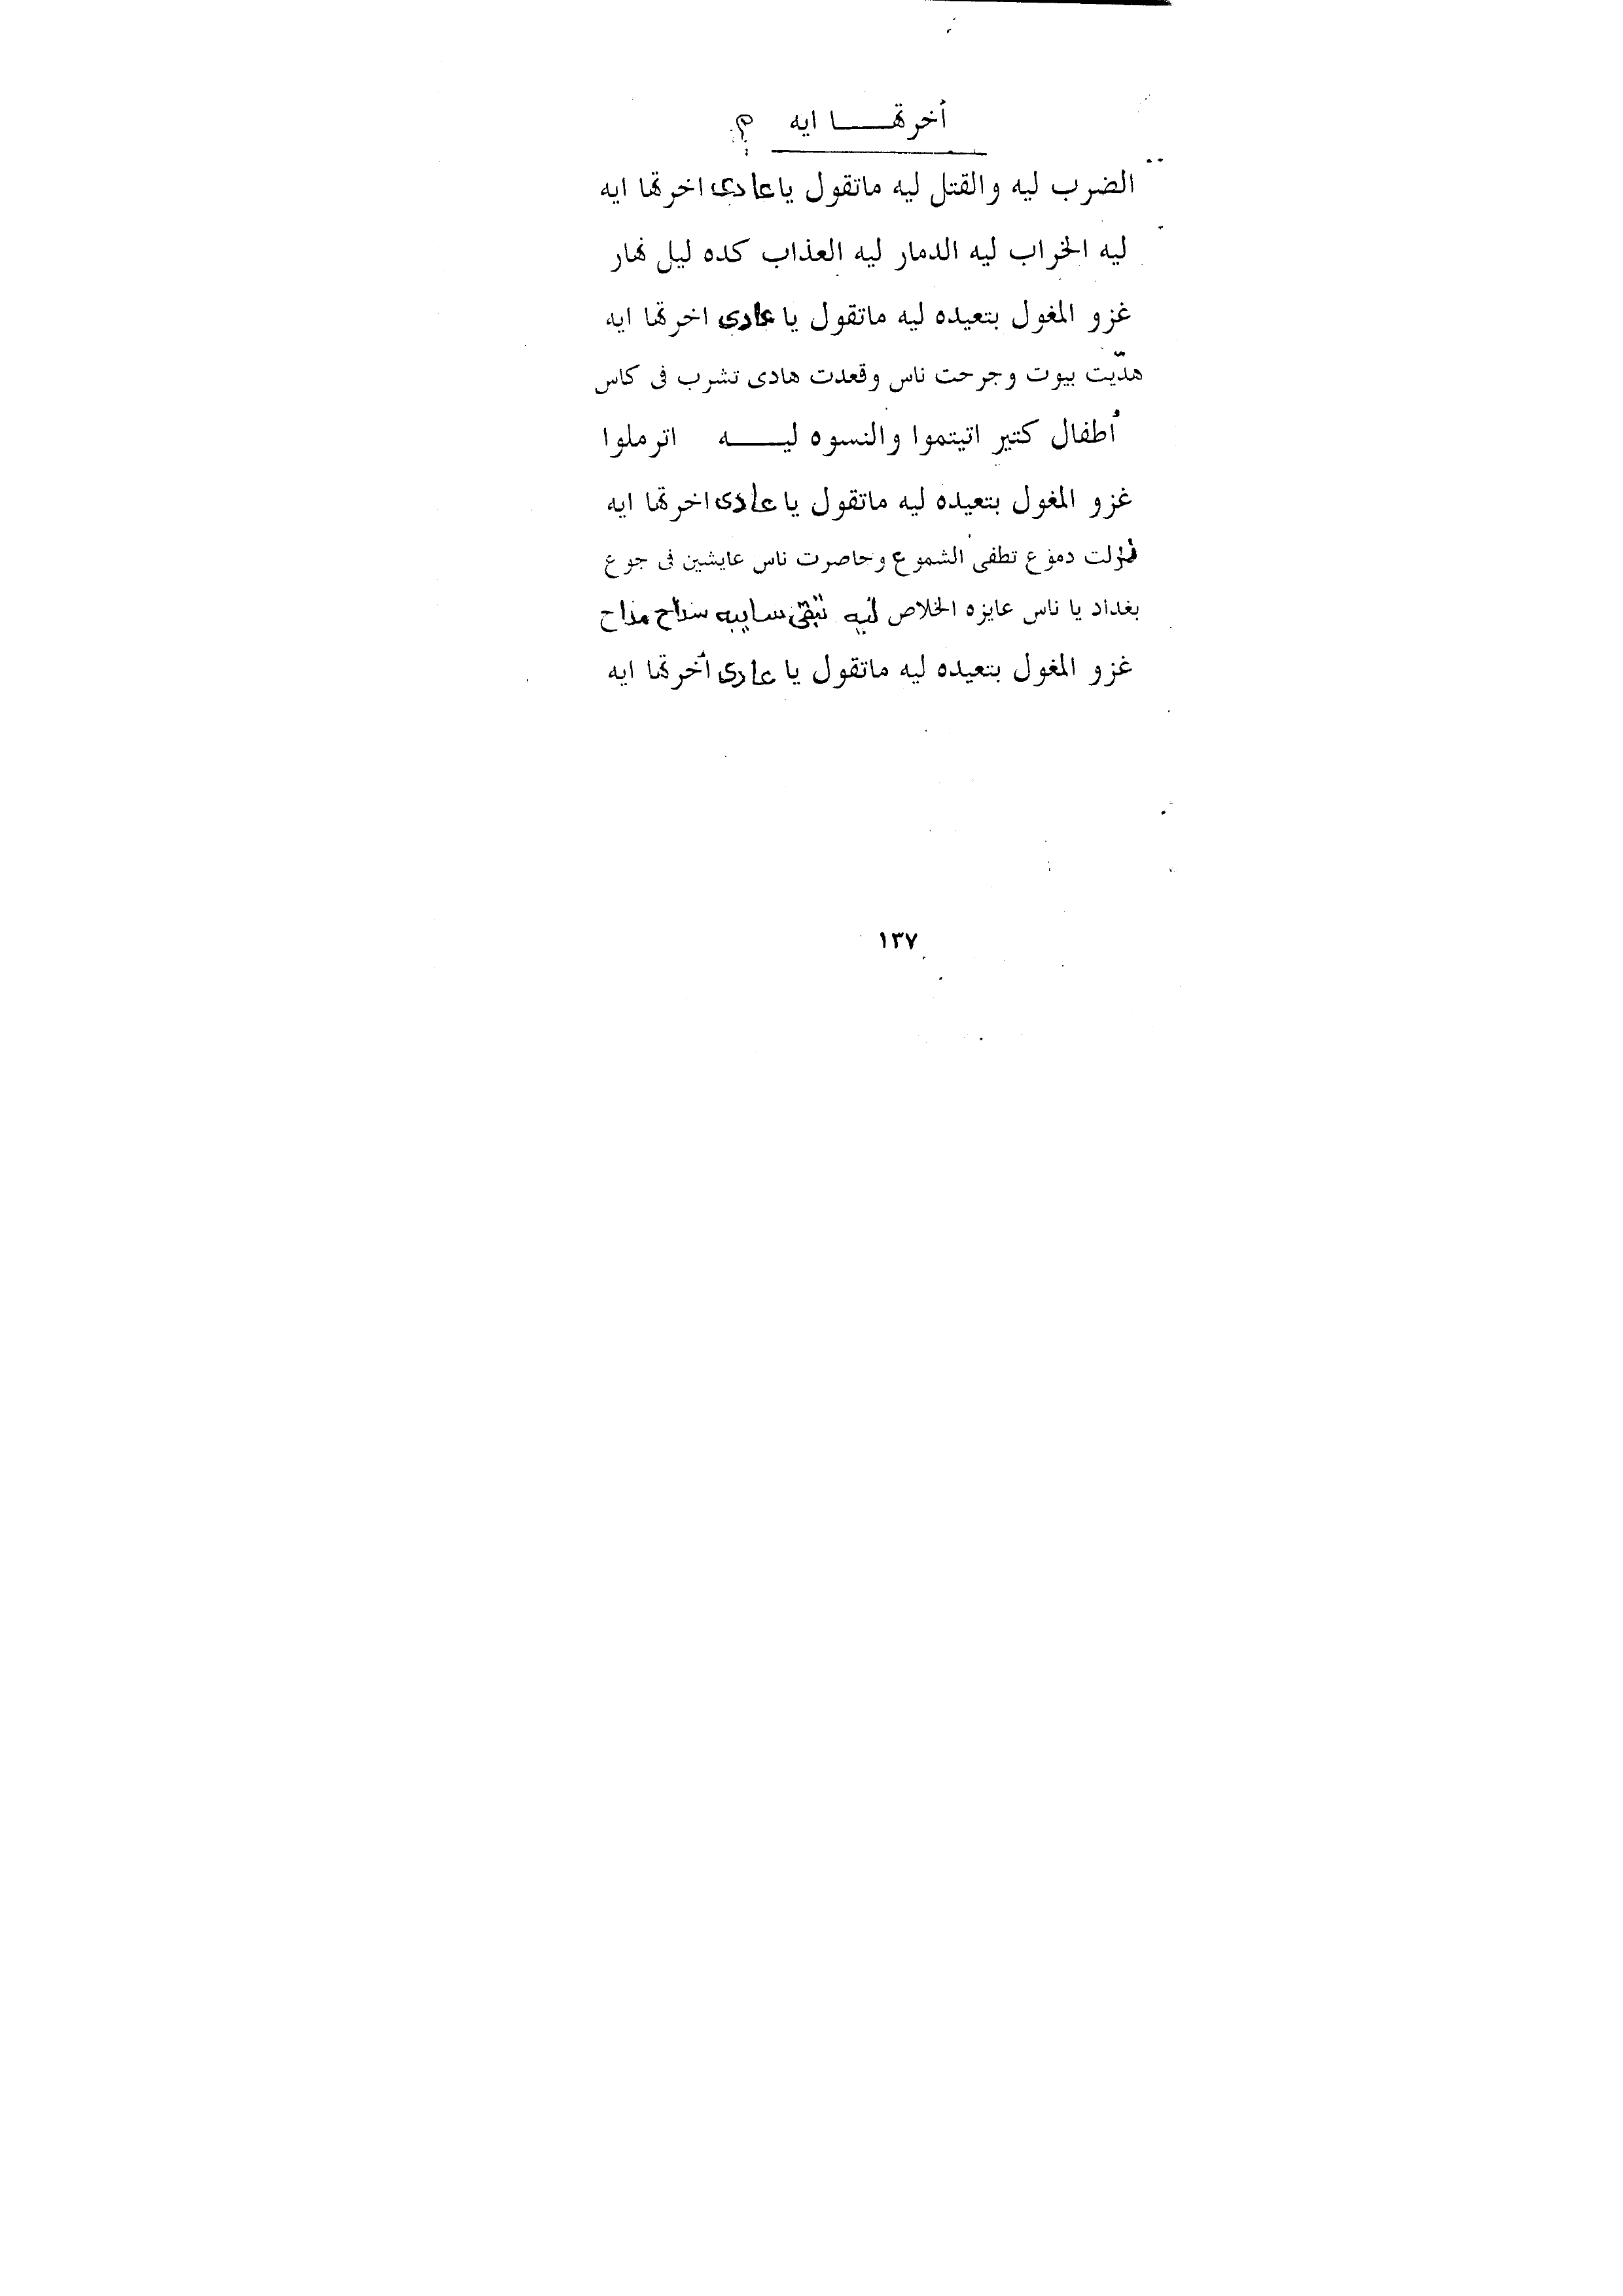 أخرتها ايه ؟
الضرب ليه والقتل ليه ماتقول يا عادى اخرتها ايه
ليه الخراب ليه الدمار ليه العذاب كده ليل نهار
غزو المغول بتعيده ليه ماتقول يا عادى اخرتها ايه
هدّيت بيوت وجرحت ناس وقعدت هادى تشرب فى كاس
أطفال كتير اتيتموا والنسوه ليه اترملوا
غزو المغول بتعيده ليه ماتقول يا عادى اخرتها ايه
نزلت دموع تطفى الشموع وحاصرت ناس عايشين فى جوع
بغداد يا ناس عايزه الخلاص ليه تبقى سايبه سداح مداح
غزو المغول بتعيده ليه ماتقول يا عادى أخرتها ايه
١٣٧